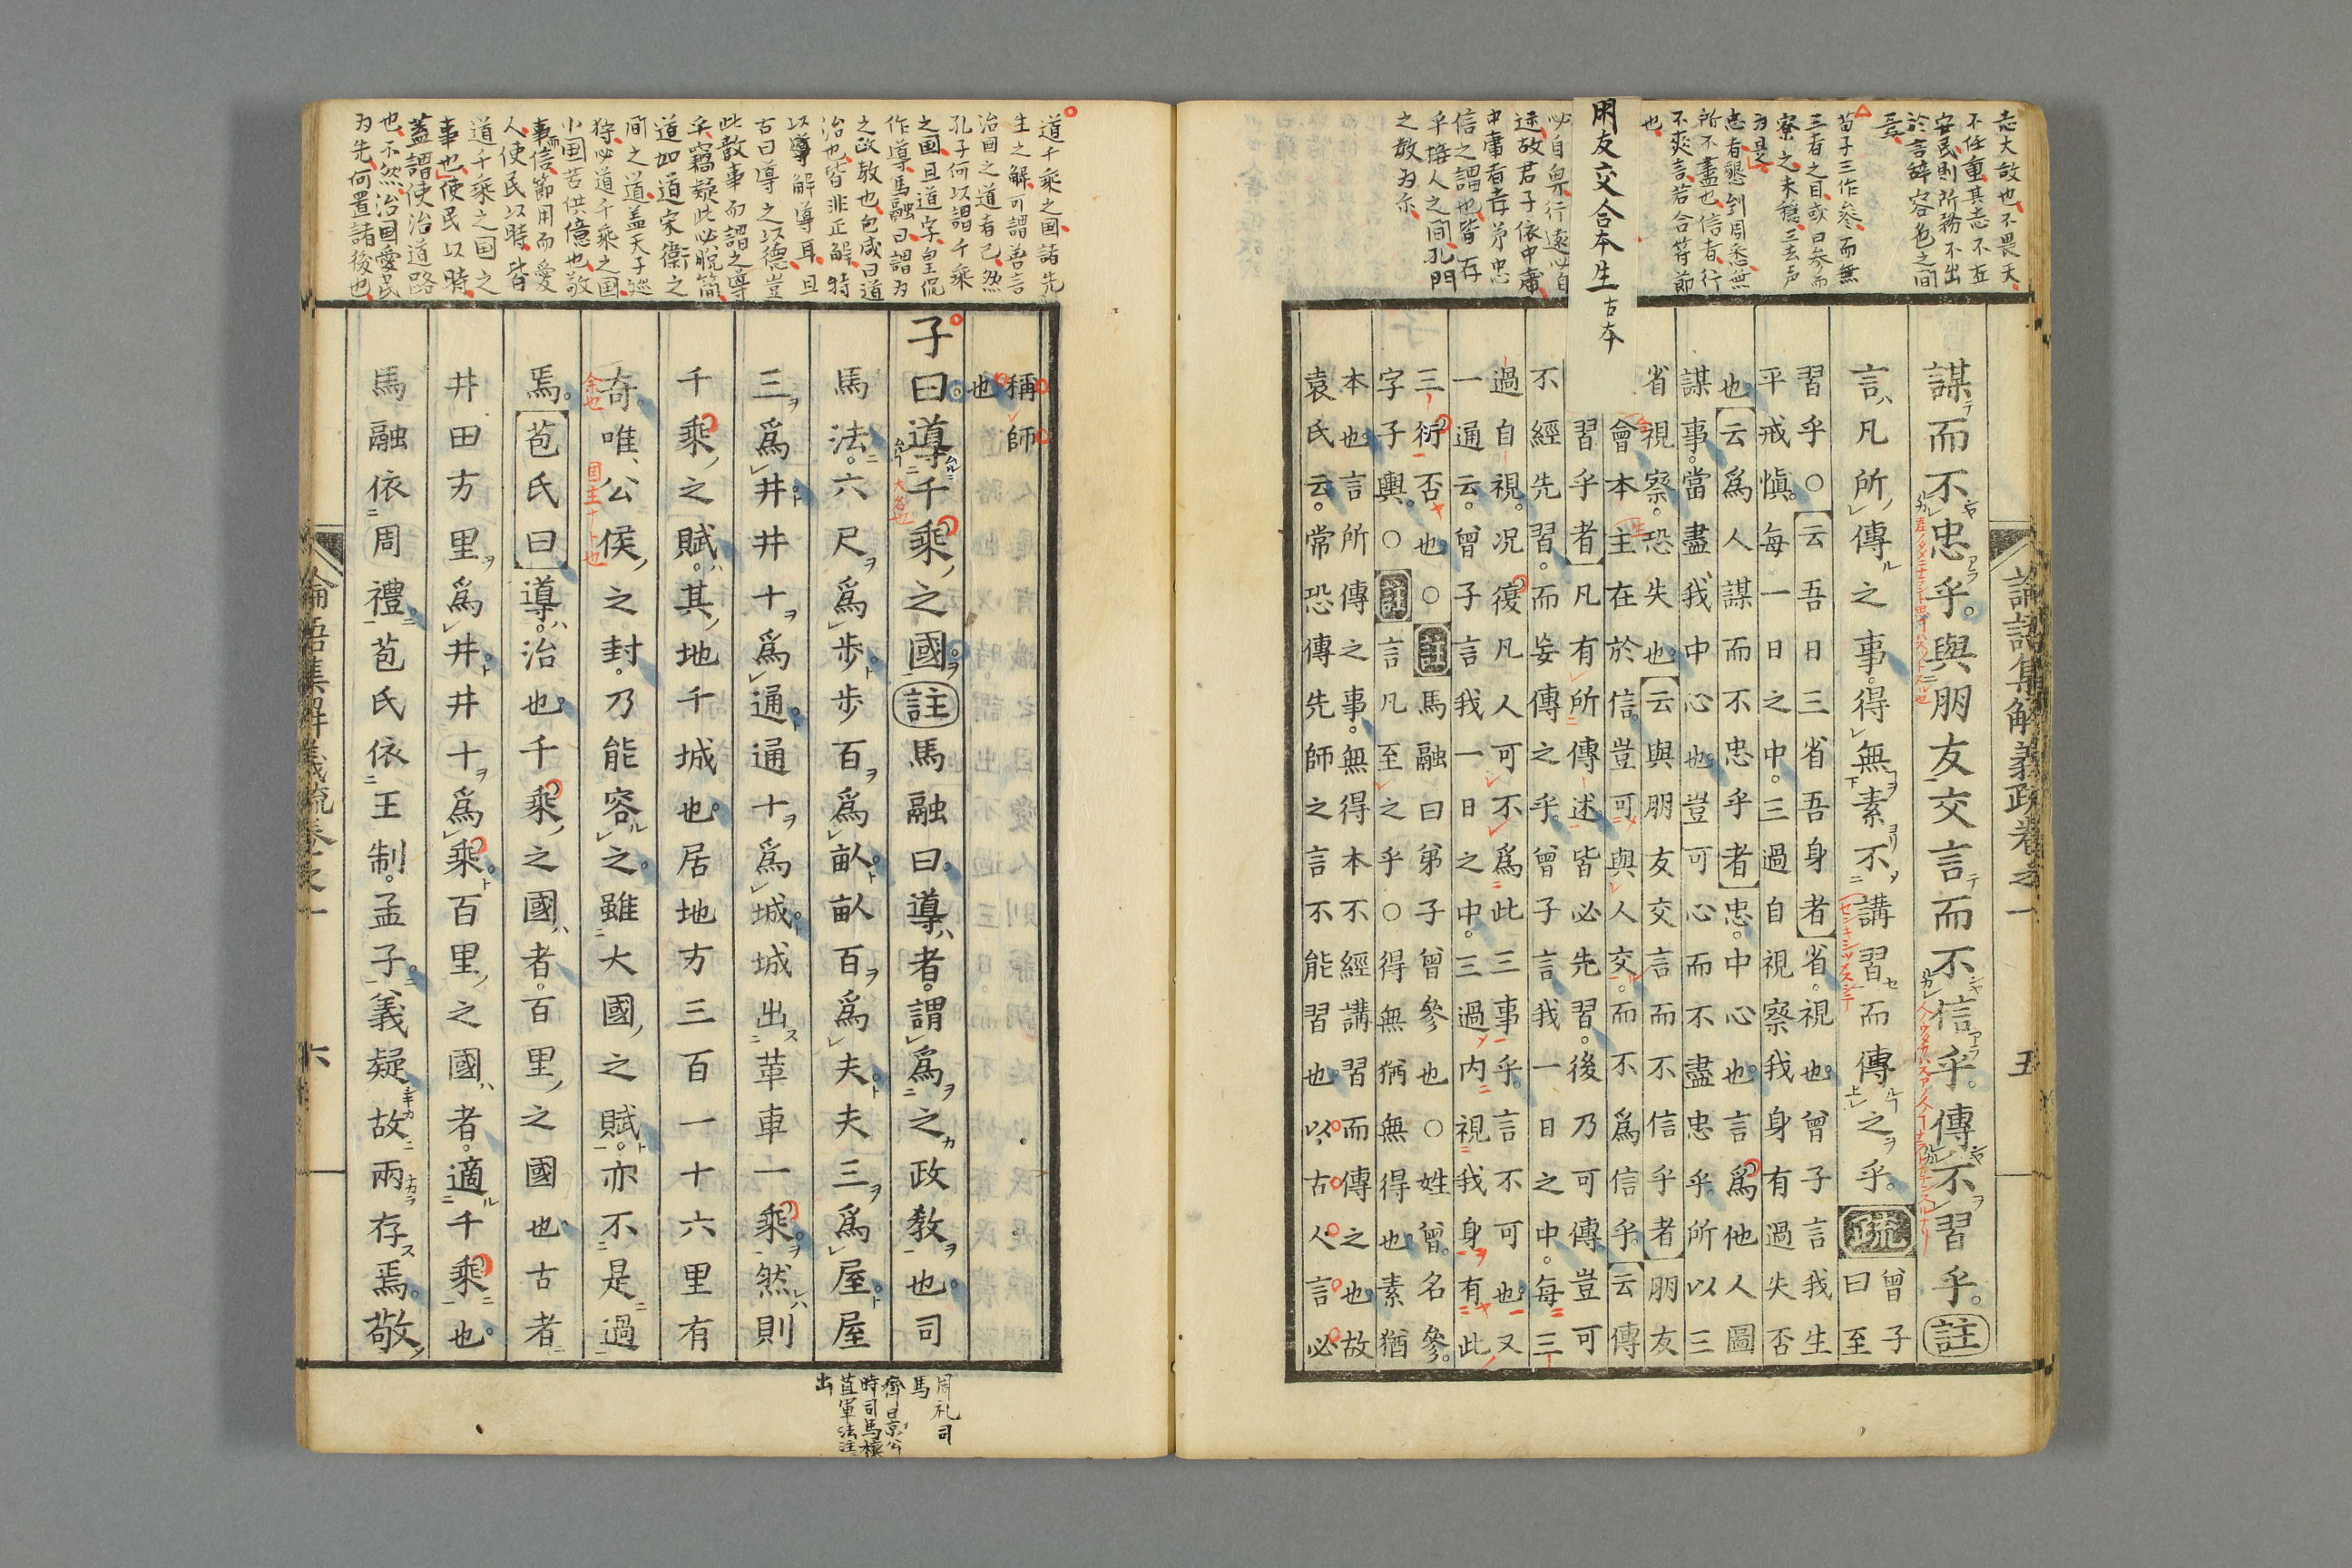 志大敬也不畏天
不任重其志不在
安民則所務不出
於言辞容色之間
焉
荀子三作參而無
三者之目或曰参而
察之未穏三去声
为是
忠者懇到周悉無
所不盡也信者行
不爽言若合符節
也
朋友交合本生古本
必自卑行遠必自
迩故君子依中庸
中庸者孝弟忠
信之謂也皆存
乎接人之間孔門
之敎为尓
論語集解義疏卷之一 五
謀而不忠乎。與朋友交言而不信乎。傳不習乎。註
言凡所傳之事。得無素不講習而傳之乎。疏
曾子
曰至
習乎○云吾日三省吾身者省。視也。曾子言我生
平戒愼。每一日之中。三過自視察我身有過失否
也。云爲人謀而不忠乎者忠。中心也。言爲他人圖
謀事。當盡我中心也。豈可心而不盡忠乎。所以三
省視察。恐失也。云與朋友交言而不信乎者朋友
會本主在於信。豈可與人交。而不爲信乎云傳
習乎者凡有所傳述。皆必先習。後乃可傳豈可
不經先習。而妄傳之乎。曾子言我一日之中。每三
過自視。况復凡人可不爲此三事乎。言不可也。又
一通云。曾子言我一日之中。三過内視我身有此
三衍否也○註馬融曰弟子曾參也○姓曾。名參。
字子輿。○註言凡至之乎○得無猶無得也。素猶
本也言所傳之事。無得本不經講習而傳之也故
袁氏云。常恐傳先師之言不能習也。以古人言必
道千乘之国諸先
生之解可謂善言
治国之道者已然
孔子何以謂千乘
之国且道字皇侃
作導馬融曰謂为
之政敎也包咸曰道
治也皆非正解特
以導解導耳且
古曰導之以德豈
此敎事而謂之導
乎竊疑此必脱簡
道如道宋衛之
間之道盖天子巡
狩必道千乘之国
小国苦供億也敬
事而信節用而愛
人使民以時皆
道千乘之国之
事也使民以時
蓋謂使治道路
也不然治国愛民
为先何置諸後也
稱師
也
子曰。導千乘之國。註馬融曰。導者。謂爲之政敎也。司
馬法。六尺爲步。步百爲畝。畝百爲夫。夫三爲屋。屋
三爲井。井十爲通。通十爲城。城出革車一乘。然則
千乘之賦。其地千城也。居地方三百一十六里有
奇。唯公侯之封。乃能容之。雖大國之賦。亦不是過
余也
国主十ト也
大名也
焉。苞氏曰導。治也。千乘之國者。百里之國也。古者
井田方里爲井。井十爲乘。百里之國者。適千乘也。
馬融依周禮。苞氏依王制。孟子。義疑故兩存焉。敬
論語集解義疏卷之一 六
周礼司
馬
齊景公
時司馬穰
苴軍法注
出